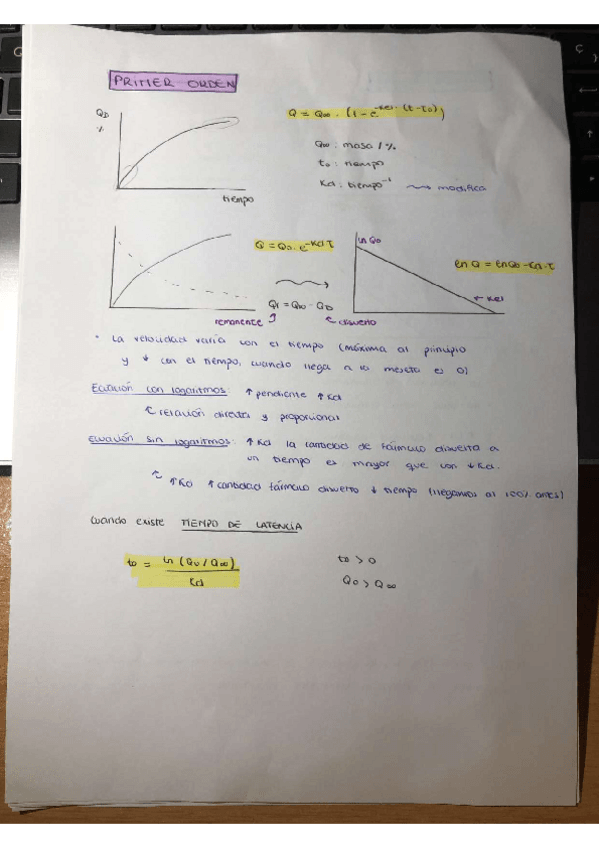 PRIMER ORDEN
QD
%
tiempo
Q = Q∞ · (1 - e^-Kd · (t-t0))
Q∞ : masa / %
t0 : tiempo
Kd : tiempo^-1 modifica
Q = Q0 · e^-Kd t
remanente
Qr = Q∞ - QD
disuelto
ln Q0
Kd
ln Q = ln Q0 - Kd · t
· La velocidad varía con el tiempo (máxima al principio
y ↓ con el tiempo, cuando llega a la meseta es 0)
Ecuación con logaritmos: ↑ pendiente ↑ Kd
relación directa y proporcional
Ecuación sin logaritmos: ↑ Kd la cantidad de fármaco disuelta a
un tiempo es mayor que con ↓ Kd.
↑ Kd ↑ cantidad fármaco disuelto ↓ tiempo (llegamos al 100% antes)
Cuando existe TIEMPO DE LATENCIA
t0 = ln (Q0 / Q∞)
Kd
t0 > 0
Q0 > Q∞